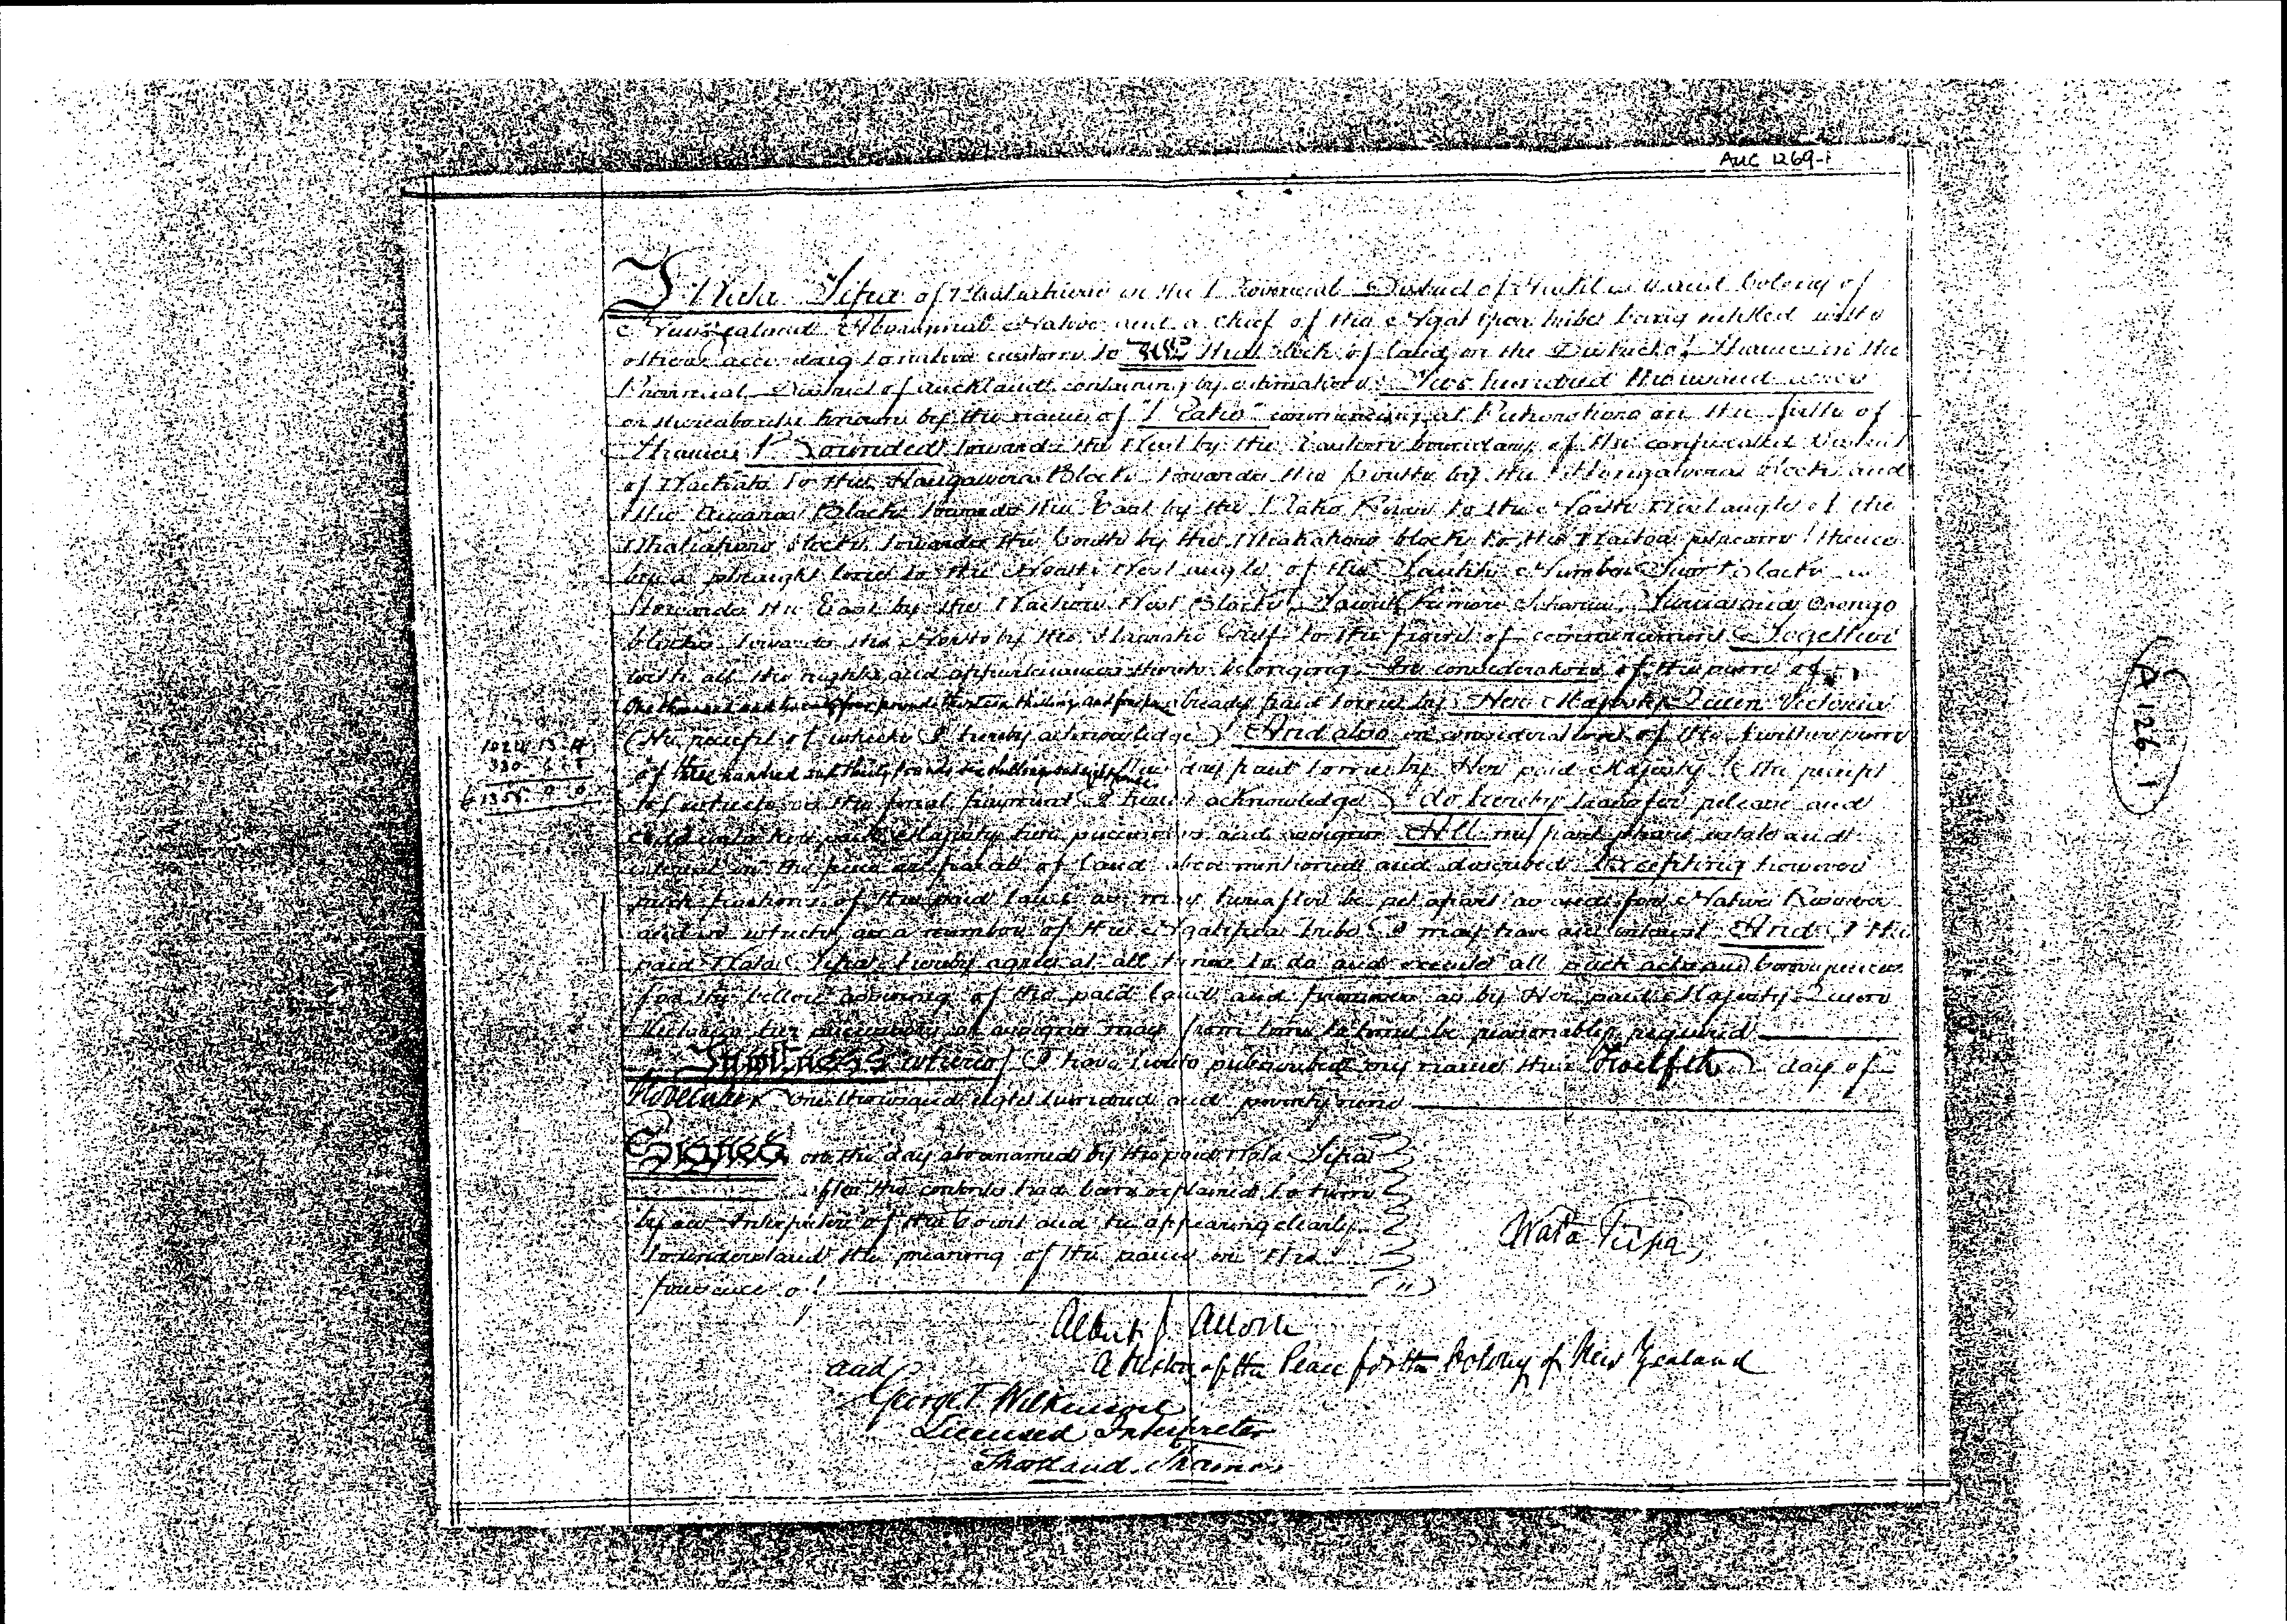 AUC 1269-1
I Wata Tipa of Whatawhiwhi in the Provincial District of Auckland and Colony of
New Zealand Aboriginal Native and a Chief of the Ngatipaoa tribe being entitled with
others according to native custom to All that block of land in the District of Thames in the
Provincial District of Auckland containing by estimation Two hundred thousand acres
or thereabouts known by the name of "Piako" commencing at Pukorokoro on the firth of
Thames Bounded towards the West by the Eastern boundary of the confiscated
of Waikato to the Hangawera Block towards the South by the Hangawera block and
the Block towards the East by the Piako River to the North West angle of the
block towards the South by the block to the Waitoa stream thence
by a straight line to the North West angle of the Number Block
towards the East by the Waihou West Block
blocks towards the North by the Hauraki Gulf to the point of commencement Together
with all the rights and appurtenances thereto belonging In consideration of the sum of
One thousand and twenty four pounds thirteen shillings and four pence already paid to me by Her Majesty Queen Victoria
(the receipt of which I hereby acknowledge) And also in consideration of the further sum
1024 13 4
330
of three hundred and thirty pounds shillings and eight pence this day paid to me by Her said Majesty (the receipt
of which as the final payment I hereby acknowledge) do hereby transfer release and
unto her said Majesty her successors and assigns All my part share estate and
interest in the piece or parcel of land above mentioned and described Excepting however
such portions of the said land as may hereafter be set apart as and for Native Reserves
and in which as a member of the Ngatipaoa tribe I may have an interest And I the
said Wata Tipa hereby agree at all times to do and execute all such acts and
for the better assuring of the said land and premises as by Her said Majesty Queen
Victoria her successors or assigns may from time to time be reasonably required
In witness whereof I have hereto subscribed my name this Twelfth day of
November One thousand eight hundred and seventy nine
Signed on the day abovenamed by the said Wata Tipa
after the contents had been explained to him
by an Interpreter of the Court and he appearing clearly
to understand the meaning of the same in the
presence of
Wata Tipa
Albert J Allom
A Justice of the Peace for the Colony of New Zealand
and
George T. Wilkinson
Licensed Interpreter
Shortland. Thames
A 126 1